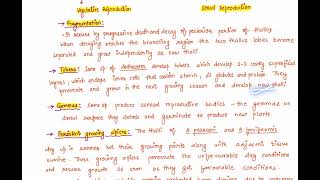 Vegetative Reproduction
Sexual Reproduction
→ Fragmentation:-
• It occurs by progressive death and decay of posterior portion of thallus
when decaying reaches the branching region the two thallus lobes become
separated and grow independently as new thalli.
→ Tubers: Some sp of Anthoceros develop tubers which develop 2-3 corky superficial
layers, which enclose inner cells that contain starch, oil globules and protein. They
perennate and grow in the next growing season and develop new thalli.
→ Gemmae: Some sp produce asexual reproductive bodies – the gemmae on
dorsal surface they detach and germinate to produce new plants
→ Persistent growing apices: The thalli of A. pearsoni and A. fusiformis
dry up in summer but these growing points along with adjacent tissue
survive. These growing apices perennate the unfavourable dry conditions
and resume growth as soon as they get favourable conditions.